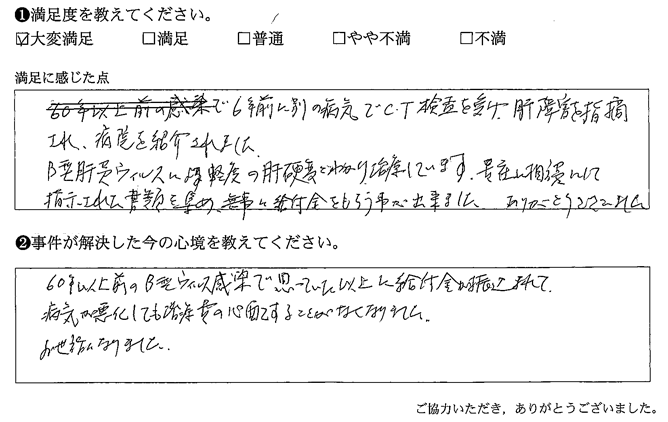 ❶満足度を教えてください。
☑大変満足 □満足 □普通 □やや不満 □不満
満足に感じた点
60年以上前の感染で6年前に別の病気でC.T検査を受け、肝障害を指摘
され、病院を紹介されました。
B型肝炎ウィルスによる軽度の肝硬変とわかり治療しています。 相談して
指示された書類を集め、無事に給付金をもらう事が出来ました ありがとうございました
❷事件が解決した今の心境を教えてください。
60年以上前のB型ウィルス感染で思っていた以上に給付金が振込まれて、
病気が悪化しても治療費の心配をすることがなくなりました。
お世話になりました。
ご協力いただき，ありがとうございました。